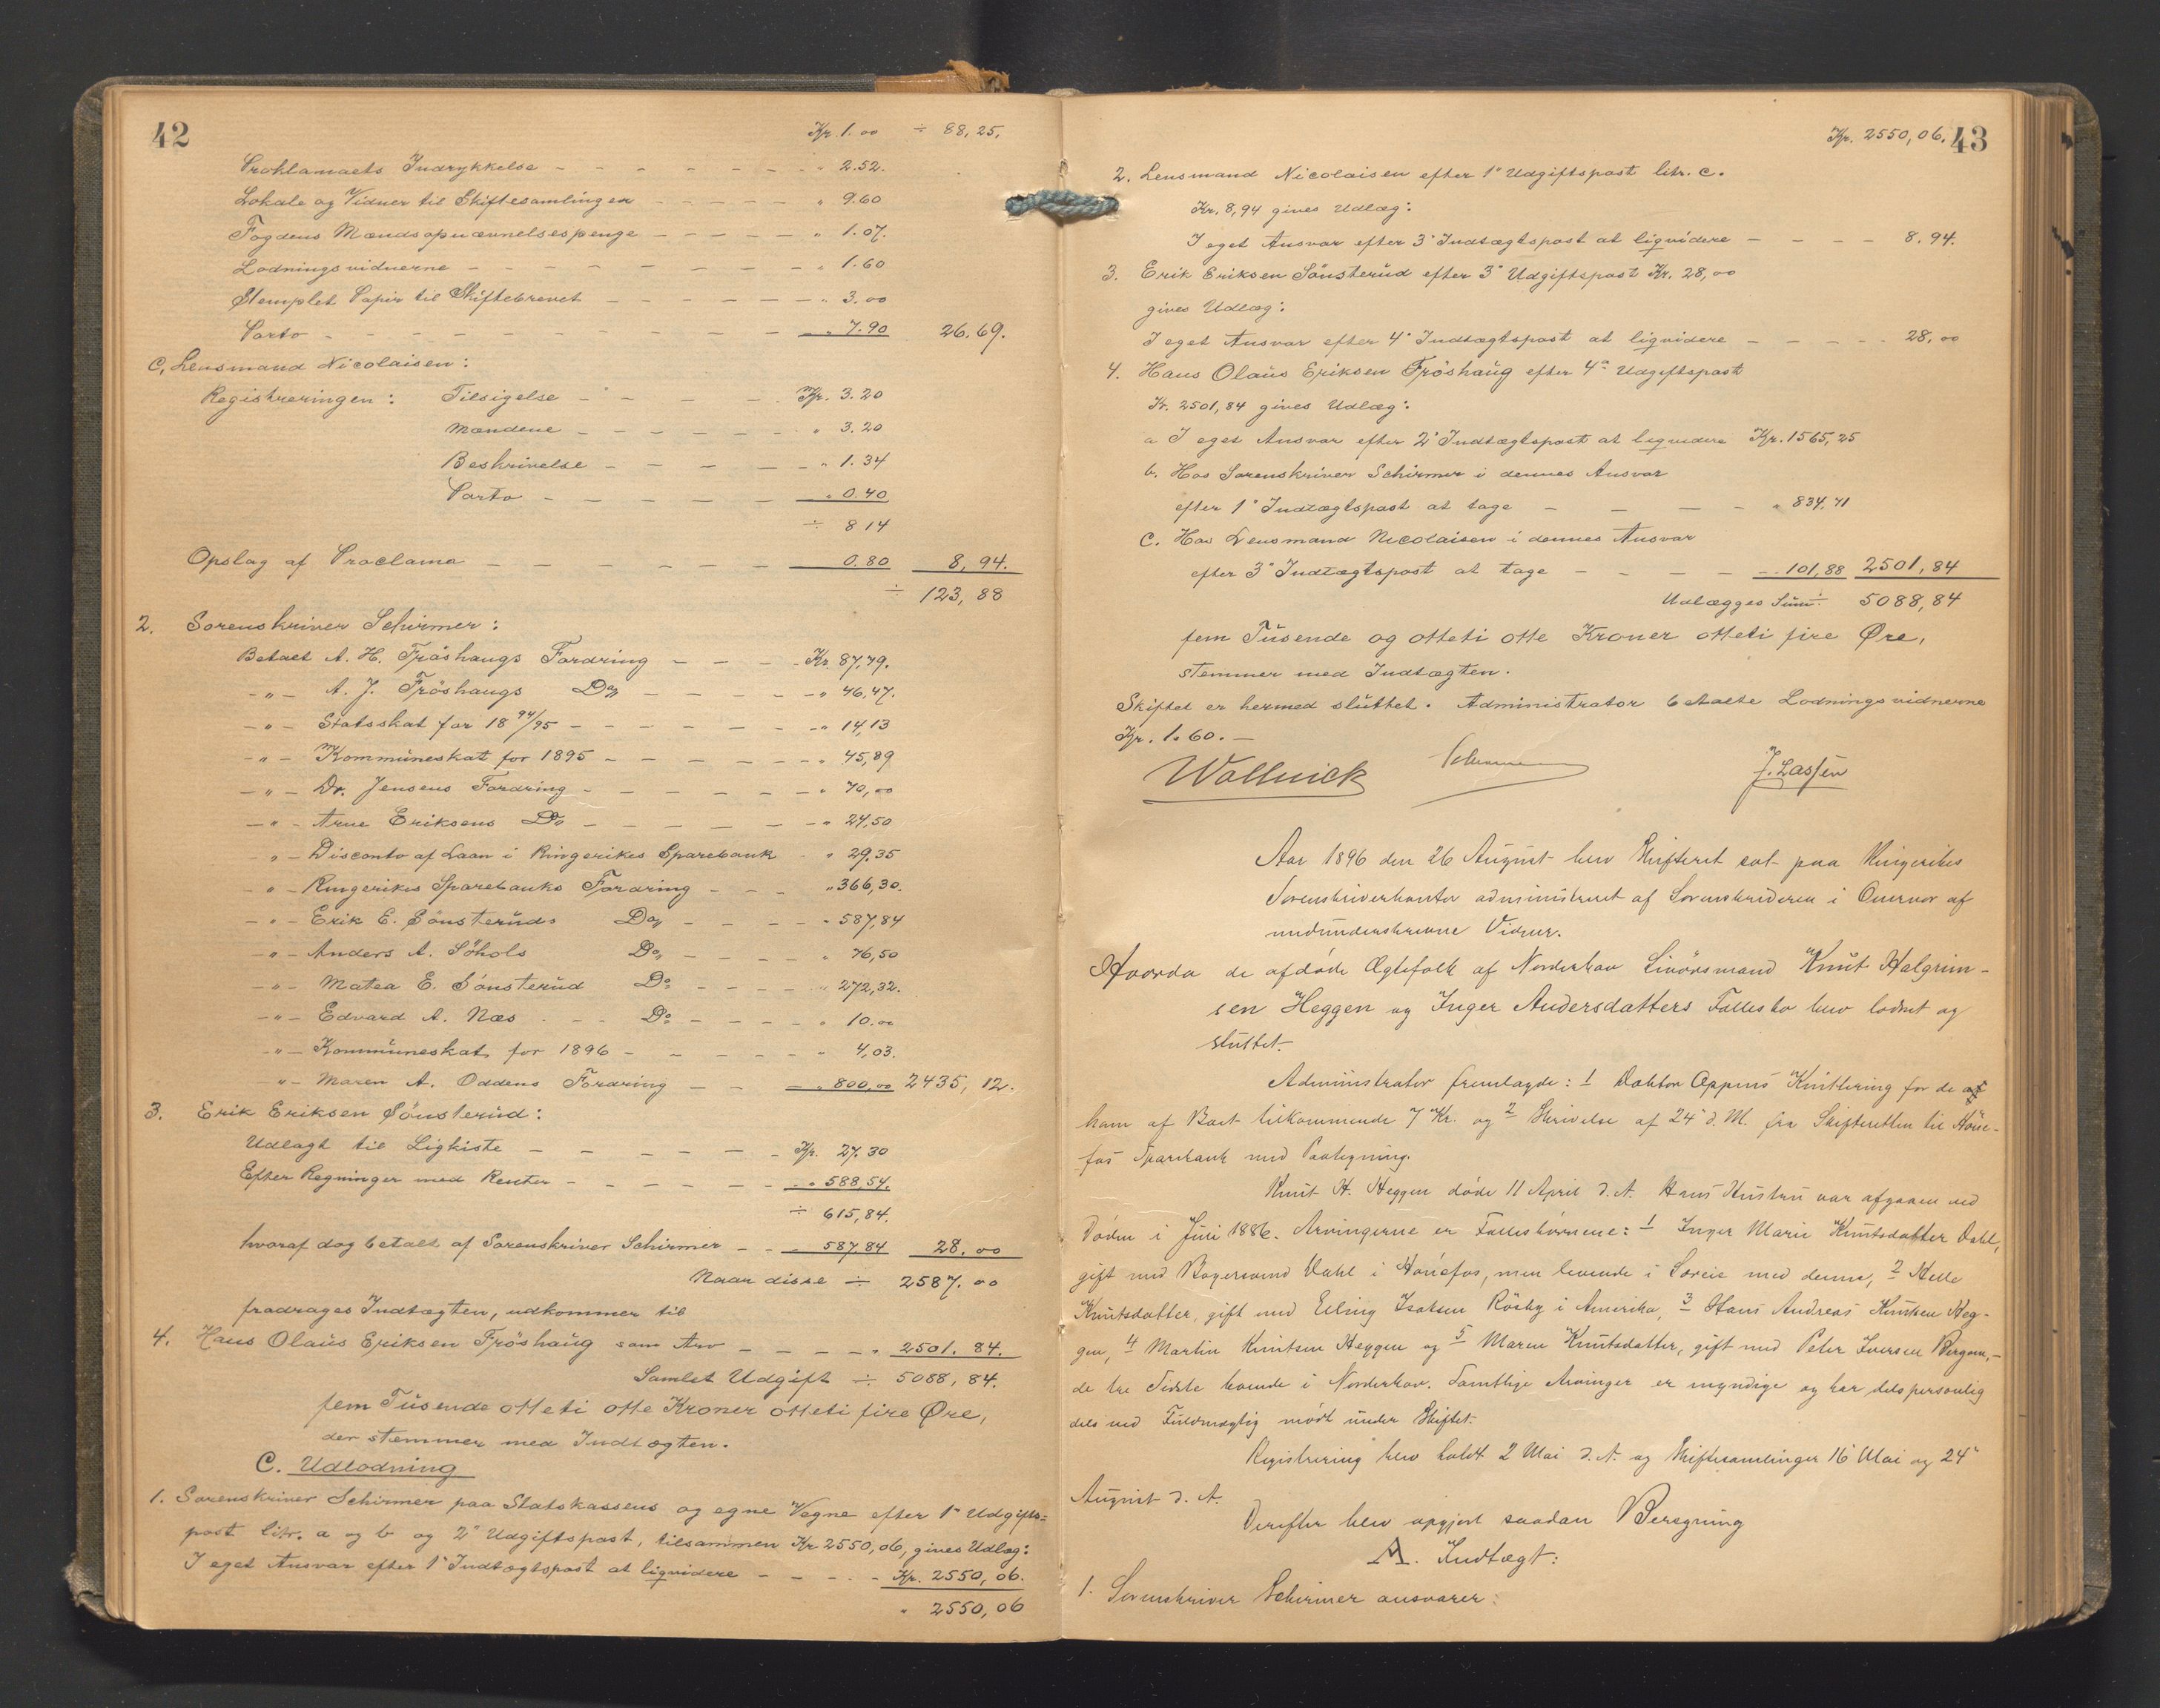 42
Kr. 1.00 ÷ 88,25.
Proklamaets Indrykkelse - - - - - - - - " 2.52.
Lokale og Vidner til Skiftesamlingen - - - - - " 9.60
Fogdens Mandsopnævnelsespenge - - - - - " 1.07.
Lodningsvidnerne - - - - - - - - - " 1.60
Stemplet Papir til Skiftebrevet - - - - - - " 3.00
Porto - - - - - - - - - - - " 7.90 26.69.
C, Lensmand Nicolaisen:
Registreringen: Tilsigelse - - - - - Kr. 3.20
Mændene - - - - - - " 3.20
Beskrivelse - - - - - " 1.34
Porto - - - - - - " 0.40
÷ 8 14
Opslag af Proclama - - - - - - - 0.80 8,94.
÷ 123,88
2. Sorenskriver Schirmer:
Betalt A. H. Fröshaugs Fordring - - - - Kr. 87,79.
-"- A. J. Fröshaugs Do - - - - - " 46,47.
-"- Statsskat for 18 94/95 - - - - - - - " 14,13
-"- Kommüneskat for 1895 - - - - - - " 45,89
-"- Dr. Jensens Fordring - - - - - - " 70,00
-"- Arne Eriksens Do - - - - - - " 24,50
" - Disconto af Laan i Ringerikes Sparebank - " 29,35
" - Ringerikes Sparebanks Fordring - - - " 366,30.
-"- Erik E. Sönsterüds Do - - - - " 587,84
-"- Anders A. Söhols Do - - - - " 76,50
-"- Matea E. Sönsterüd Do - - - - " 272,32.
-"- Edvard A. Næs - - Do - - - - " 10.00
-"- Kommüneskat for 1896 - - - - - " 4,03.
"- Maren A. Oddens Fordring - - - " 800,00 2435,12.
3. Erik Eriksen Sönsterüd:
Udlagt til Ligkiste - - - - - - Kr. 27.30
Efter Regninger med Renter - - - - - " 588,54.
÷ 615,84.
hvoraf dog betalt af Sorenskriver Schirmer - - - 587.84 28.00
Naar disse ÷ 2587.00
fradrages Indtægten, udkommer til
4. Hans Olaüs Eriksen Fröshaüg som Arv - - - - " 2501.84.
Samlet Udgift ÷ 5088,84.
fem Tüsende otteti otte Kroner otteti fire Øre,
der stemmer med Indtægten.
C. Udlodning
1. Sorenskriver Schirmer paa Statskassens og egne Vegne efter 1° Udgifts=
post litr. a og b og 2° Udgiftspost, tilsammen Kr 2550,06, gives Udlæg:
I eget Ansvar efter 1° Indtægtspost at liqvidere - - - - Kr. 2550,06.
" 2550,06
43
Kr. 2550,06.
2. Lensmand Nicolaisen efter 1° Udgiftspost litr. c.
Kr. 8,94 gives Udlæg:
I eget Ansvar efter 3° Indtægtspost at liqvidere - - - - 8.94.
3. Erik Eriksen Sönsterüd efter 3° Udgiftspost Kr. 28,00
gives Udlæg:
I eget Ansvar efter 4° Indtægtspost at liqvidere - - - - - 28,00
4. Hans Olaüs Eriksen Fröshaüg efter 4° Udgiftspost
Kr. 2501,84 gives Udlæg:
a I eget Ansvar efter 2° Indtægtspost at liqvidere Kr. 1565,25
b. Hos Sorenskriver Schirmer i dennes Ansvar
efter 1° Indtægtspost at tage - - - - " 834,71
c. Hos Lensmand Nicolaisen i dennes Ansvar
efter 3° Indtægtspost at tage - - - - - 101,88 2501,84
Udlægges Süm ÷ 5088,84
fem Tüsende og otteti otte Kroner otteti fire Øre,
stemmer med Indtægten.
Skiftet er hermed slüttet. Administrator betalte Lodningsvidnerne
Kr. 1.60.-
Wollnick Schirmer J. Lassen
Aar 1896 den 26 August blev Skifteret sat paa Ringerikes
Sorenskriverkontor administreret af Sorenskriveren i Overvær af
nedünderskrevne Vidner.
Hvorda de afdöde Ægtefolk af Norderhov Livörsmand Knüt Halgrim-
sen Heggen og Inger Andersdatters Fællesbo blev loddet og
sluttet.
Administrator fremlagde: 1 Doktor Oppens Kvittering for de af
ham af Boet tilkommende 7 Kr. og 2 Skrivelse af 24° d. M. fra Skifteretten til Höne-
fos Sparebank med Paategning.
Knut H. Heggen döde 11 April d. A. Hans Hustru var afgaaen ved
Döden i Juni 1886. Arvingerne er Fællesbörnene: 1 Inger Marie Knutsdatter Dahl,
gift med Bogersvend Dahl i Hönefos, men levende i Søreie med denne, 2 Helle
Knutsdatter, gift med Elling Isaksen Rösby i Amerika, 3 Hans Andreas Knutsen Heg-
gen, 4 Martin Knutsen Heggen og 5 Maren Knutsdatter, gift med Peter Iversen Bergom,-
de tre Sidste boende i Norderhov. Samtlige Arvinger er myndige og har dels personlig
dels ved Fuldmægtig mödt under Skiftet.
Registrering blev holdt 2 Mai d. A. og Skiftesamlinger 16 Mai og 24°
August d. A.
Derefter blev opgjort saadan Beregning
A. Indtægt:
1. Sorenskriver Schirmer ansvarer: